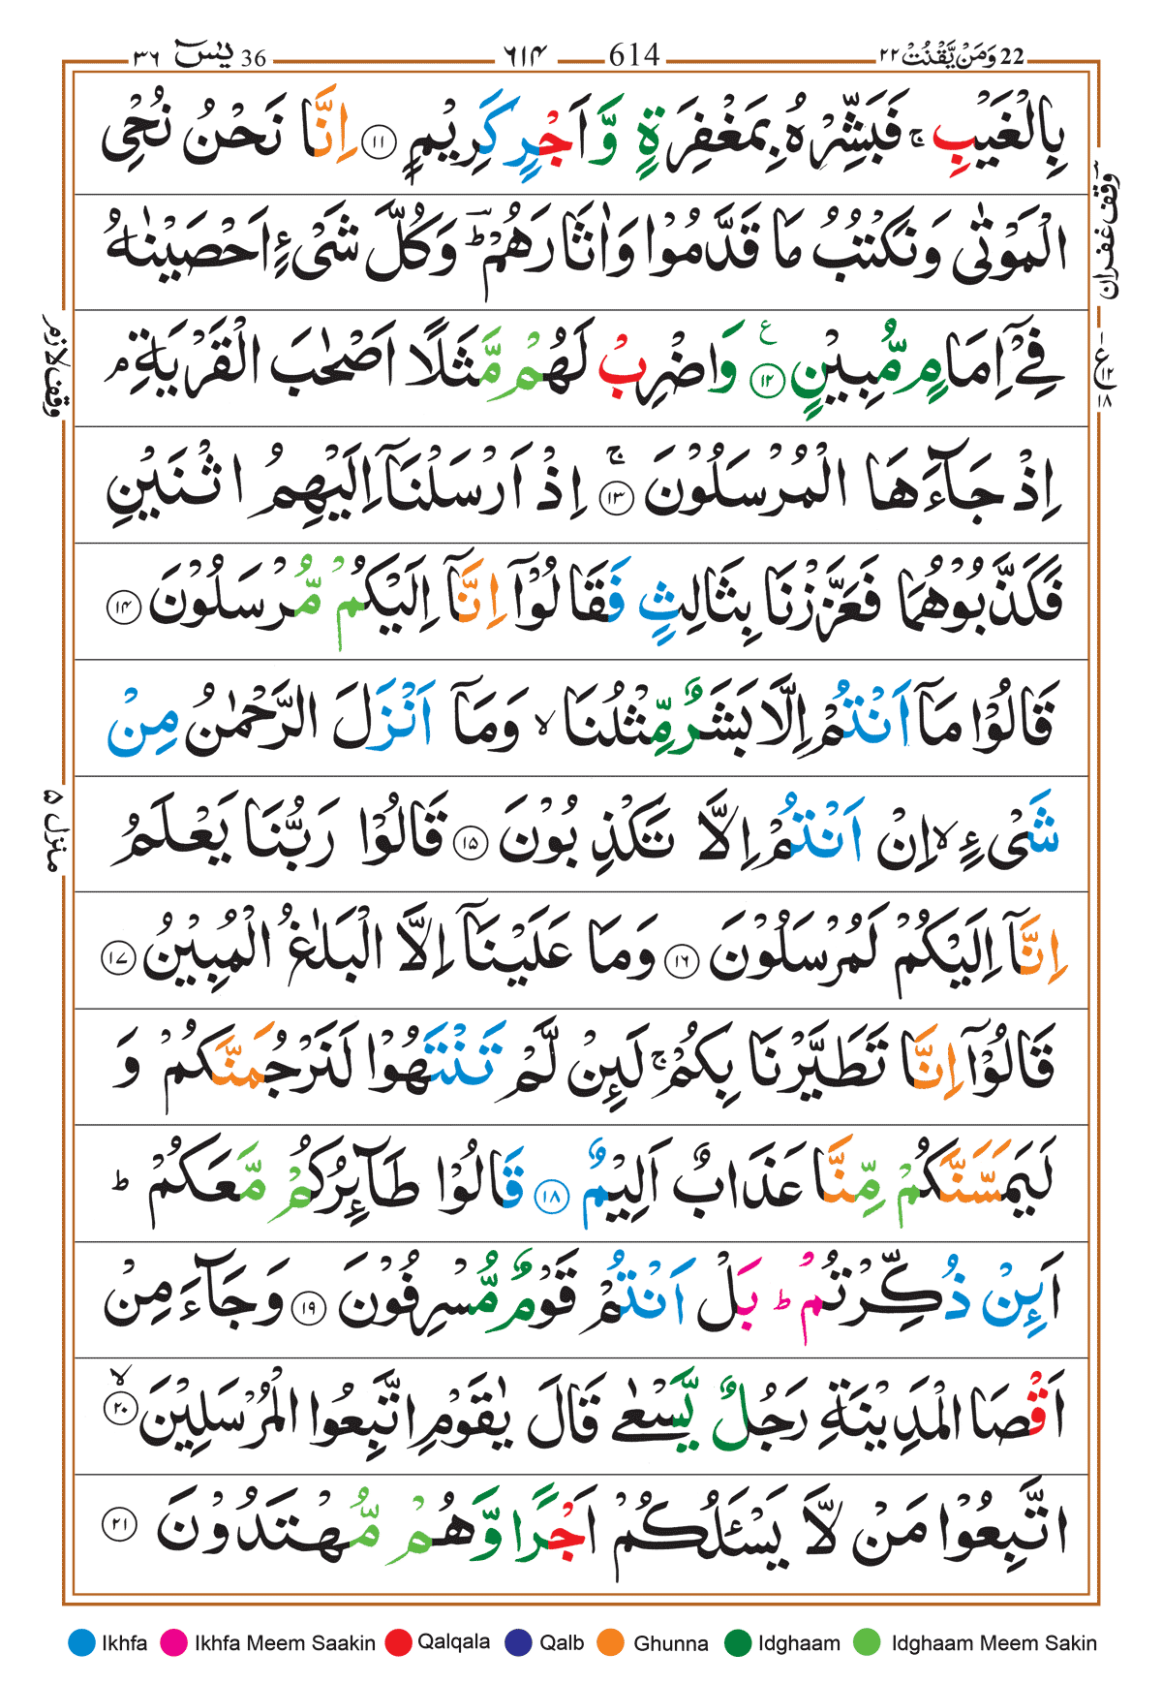 36 يٰسٓ ٣٦
614 ٦١٤
22 وَمَنْ يَّقْنُتْ ٢٢
بِالْغَيْبِ ۚ فَبَشِّرْهُ بِمَغْفِرَةٍ وَّاَجْرٍ كَرِيْمٍ ١١ اِنَّا نَحْنُ نُحْيِ
الْمَوْتٰى وَنَكْتُبُ مَا قَدَّمُوْا وَاٰثَارَهُمْ ؕ وَكُلَّ شَىْءٍ اَحْصَيْنٰهُ
فِيْۤ اِمَامٍ مُّبِيْنٍ ١٢ وَاضْرِبْ لَهُمْ مَّثَلًا اَصْحٰبَ الْقَرْيَةِ ۘ
اِذْ جَآءَهَا الْمُرْسَلُوْنَ ۚ ١٣ اِذْ اَرْسَلْنَاۤ اِلَيْهِمُ اثْنَيْنِ
فَكَذَّبُوْهُمَا فَعَزَّزْنَا بِثَالِثٍ فَقَالُوْۤا اِنَّاۤ اِلَيْكُمْ مُّرْسَلُوْنَ ١٤
قَالُوْا مَاۤ اَنْتُمْ اِلَّا بَشَرٌ مِّثْلُنَا ۙ وَمَاۤ اَنْزَلَ الرَّحْمٰنُ مِنْ
شَىْءٍ ۙ اِنْ اَنْتُمْ اِلَّا تَكْذِبُوْنَ ١٥ قَالُوْا رَبُّنَا يَعْلَمُ
اِنَّاۤ اِلَيْكُمْ لَمُرْسَلُوْنَ ١٦ وَمَا عَلَيْنَاۤ اِلَّا الْبَلٰغُ الْمُبِيْنُ ١٧
قَالُوْۤا اِنَّا تَطَيَّرْنَا بِكُمْ ۚ لَىِٕنْ لَّمْ تَنْتَهُوْا لَنَرْجُمَنَّكُمْ وَ
لَيَمَسَّنَّكُمْ مِّنَّا عَذَابٌ اَلِيْمٌ ١٨ قَالُوْا طَآىِٕرُكُمْ مَّعَكُمْ ؕ
اَىِٕنْ ذُكِّرْتُمْ ؕ بَلْ اَنْتُمْ قَوْمٌ مُّسْرِفُوْنَ ١٩ وَجَآءَ مِنْ
اَقْصَا الْمَدِيْنَةِ رَجُلٌ يَّسْعٰى قَالَ يٰقَوْمِ اتَّبِعُوا الْمُرْسَلِيْنَ ۙ ٢٠
اتَّبِعُوْا مَنْ لَّا يَسْـَٔلُكُمْ اَجْرًا وَّهُمْ مُّهْتَدُوْنَ ٢١
وقف غفران
ع ١٢ ١٨
وقف لازم
منزل ٥
Ikhfa Ikhfa Meem Saakin Qalqala Qalb Ghunna Idghaam Idghaam Meem Sakin